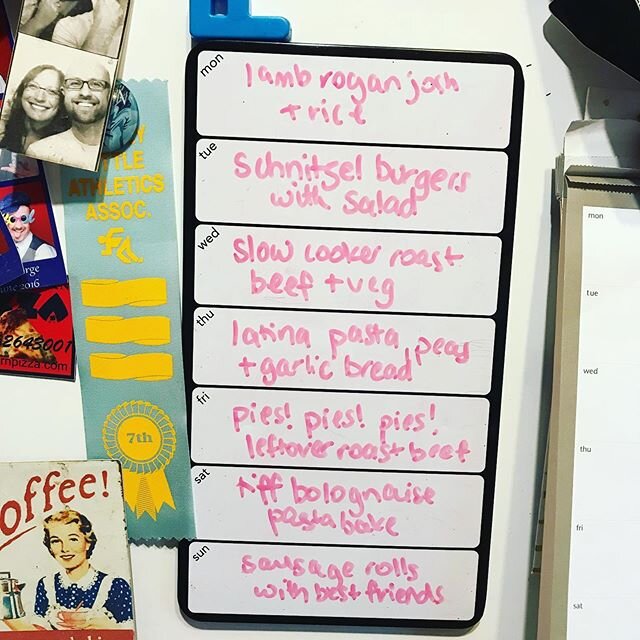 mon
lamb rogan josh
+ rice
tue
schnitzel burgers
with salad
wed
slow cooker roast
beef + veg
thu
latina pasta, peas
+ garlic bread
fri
pies! pies! pies!
leftover roast beef
sat
tiff bolognaise
pasta bake
sun
sausage rolls
with best friends
TLE
ATHLETICS
ASSOC.
7th
2016
2643001
rnpizza.com
offee!
mon
tue
wed
thu
fri
sat